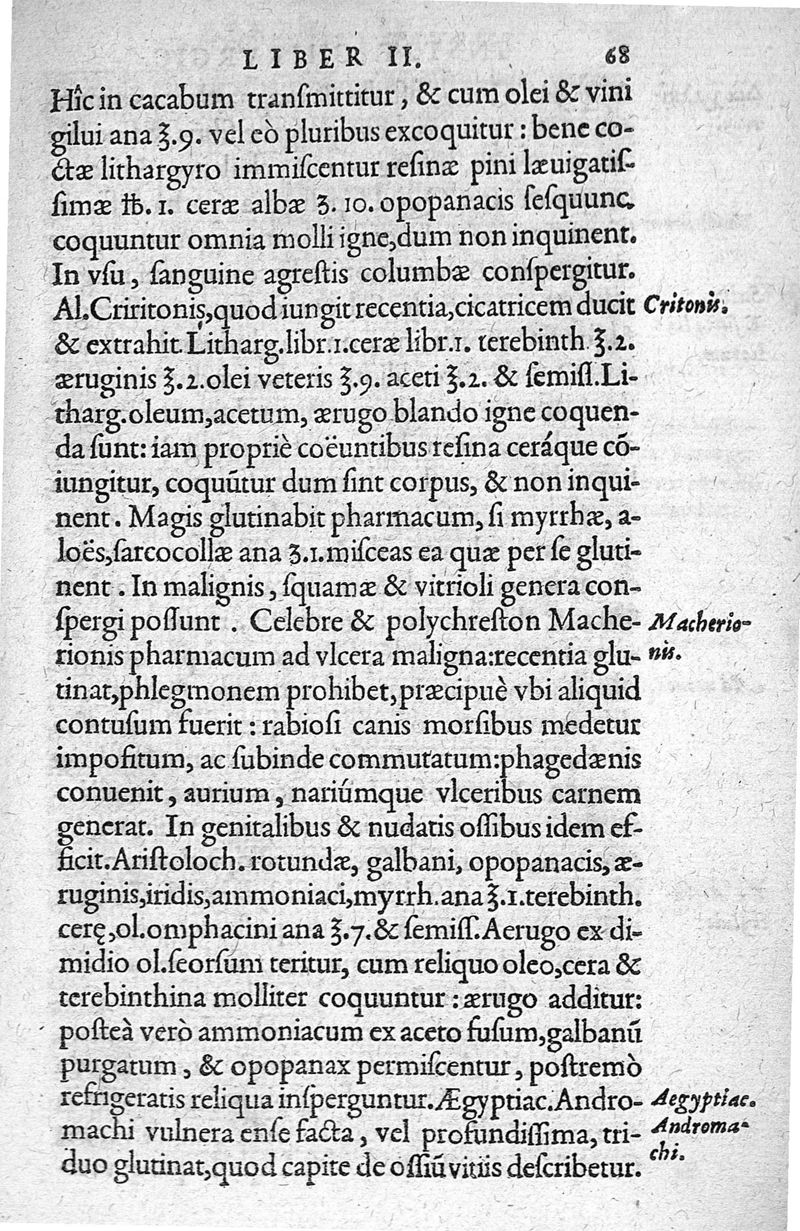 LIBER II. 68
Hîc in cacabum tranſmittitur, & cum olei & vini
gilui ana ℥.9. vel eò pluribus excoquitur: bene co-
ctæ lithargyro immiſcentur reſinæ pini læuigatiſ-
ſimæ ℔. 1. ceræ albæ ℥. 10. opopanacis ſeſquunc.
coquuntur omnia molli igne, dum non inquinent.
In vſu, ſanguine agreſtis columbæ conſpergitur.
Al. Criritonis, quod iungit recentia, cicatricem ducit Critonis.
& extrahit. Litharg. libr. 1. ceræ libr. 1. terebinth. ℥.2.
æruginis ℥.2. olei veteris ℥.9. aceti ℥.2. & ſemiſſ. Li-
tharg. oleum, acetum, ærugo blando igne coquen-
da ſunt: iam propriè coëuntibus reſina ceráque cõ-
iungitur, coquũtur dum ſint corpus, & non inqui-
nent. Magis glutinabit pharmacum, ſi myrrhæ, a-
loës, ſarcocollæ ana ʒ.1. miſceas ea quæ per ſe gluti-
nent. In malignis, ſquamæ & vitrioli genera con-
ſpergi poſſunt. Celebre & polychreſton Mache- Macherio-
rionis pharmacum ad vlcera maligna: recentia glu- nis.
tinat, phlegmonem prohibet, præcipuè vbi aliquid
contuſum fuerit: rabioſi canis morſibus medetur
impoſitum, ac ſubinde commutatum: phagedænis
conuenit, aurium, nariúmque vlceribus carnem
generat. In genitalibus & nudatis oſſibus idem ef-
ficit. Ariſtoloch. rotundæ, galbani, opopanacis, æ-
ruginis, iridis, ammoniaci, myrrh. ana ℥.1. terebinth.
cerę, ol. omphacini ana ℥.7. & ſemiſſ. Aerugo ex di-
midio ol. ſeorſum teritur, cum reliquo oleo, cera &
terebinthina molliter coquuntur: ærugo additur:
poſteà verò ammoniacum ex aceto fuſum, galbanũ
purgatum, & opopanax permiſcentur, poſtremò
refrigeratis reliqua inſperguntur. Ægyptiac. Andro- Aegyptiac.
machi vulnera enſe facta, vel profundiſſima, tri- Androma-
duo glutinat, quod capite de oſſiũ vitiis deſcribetur. chi.